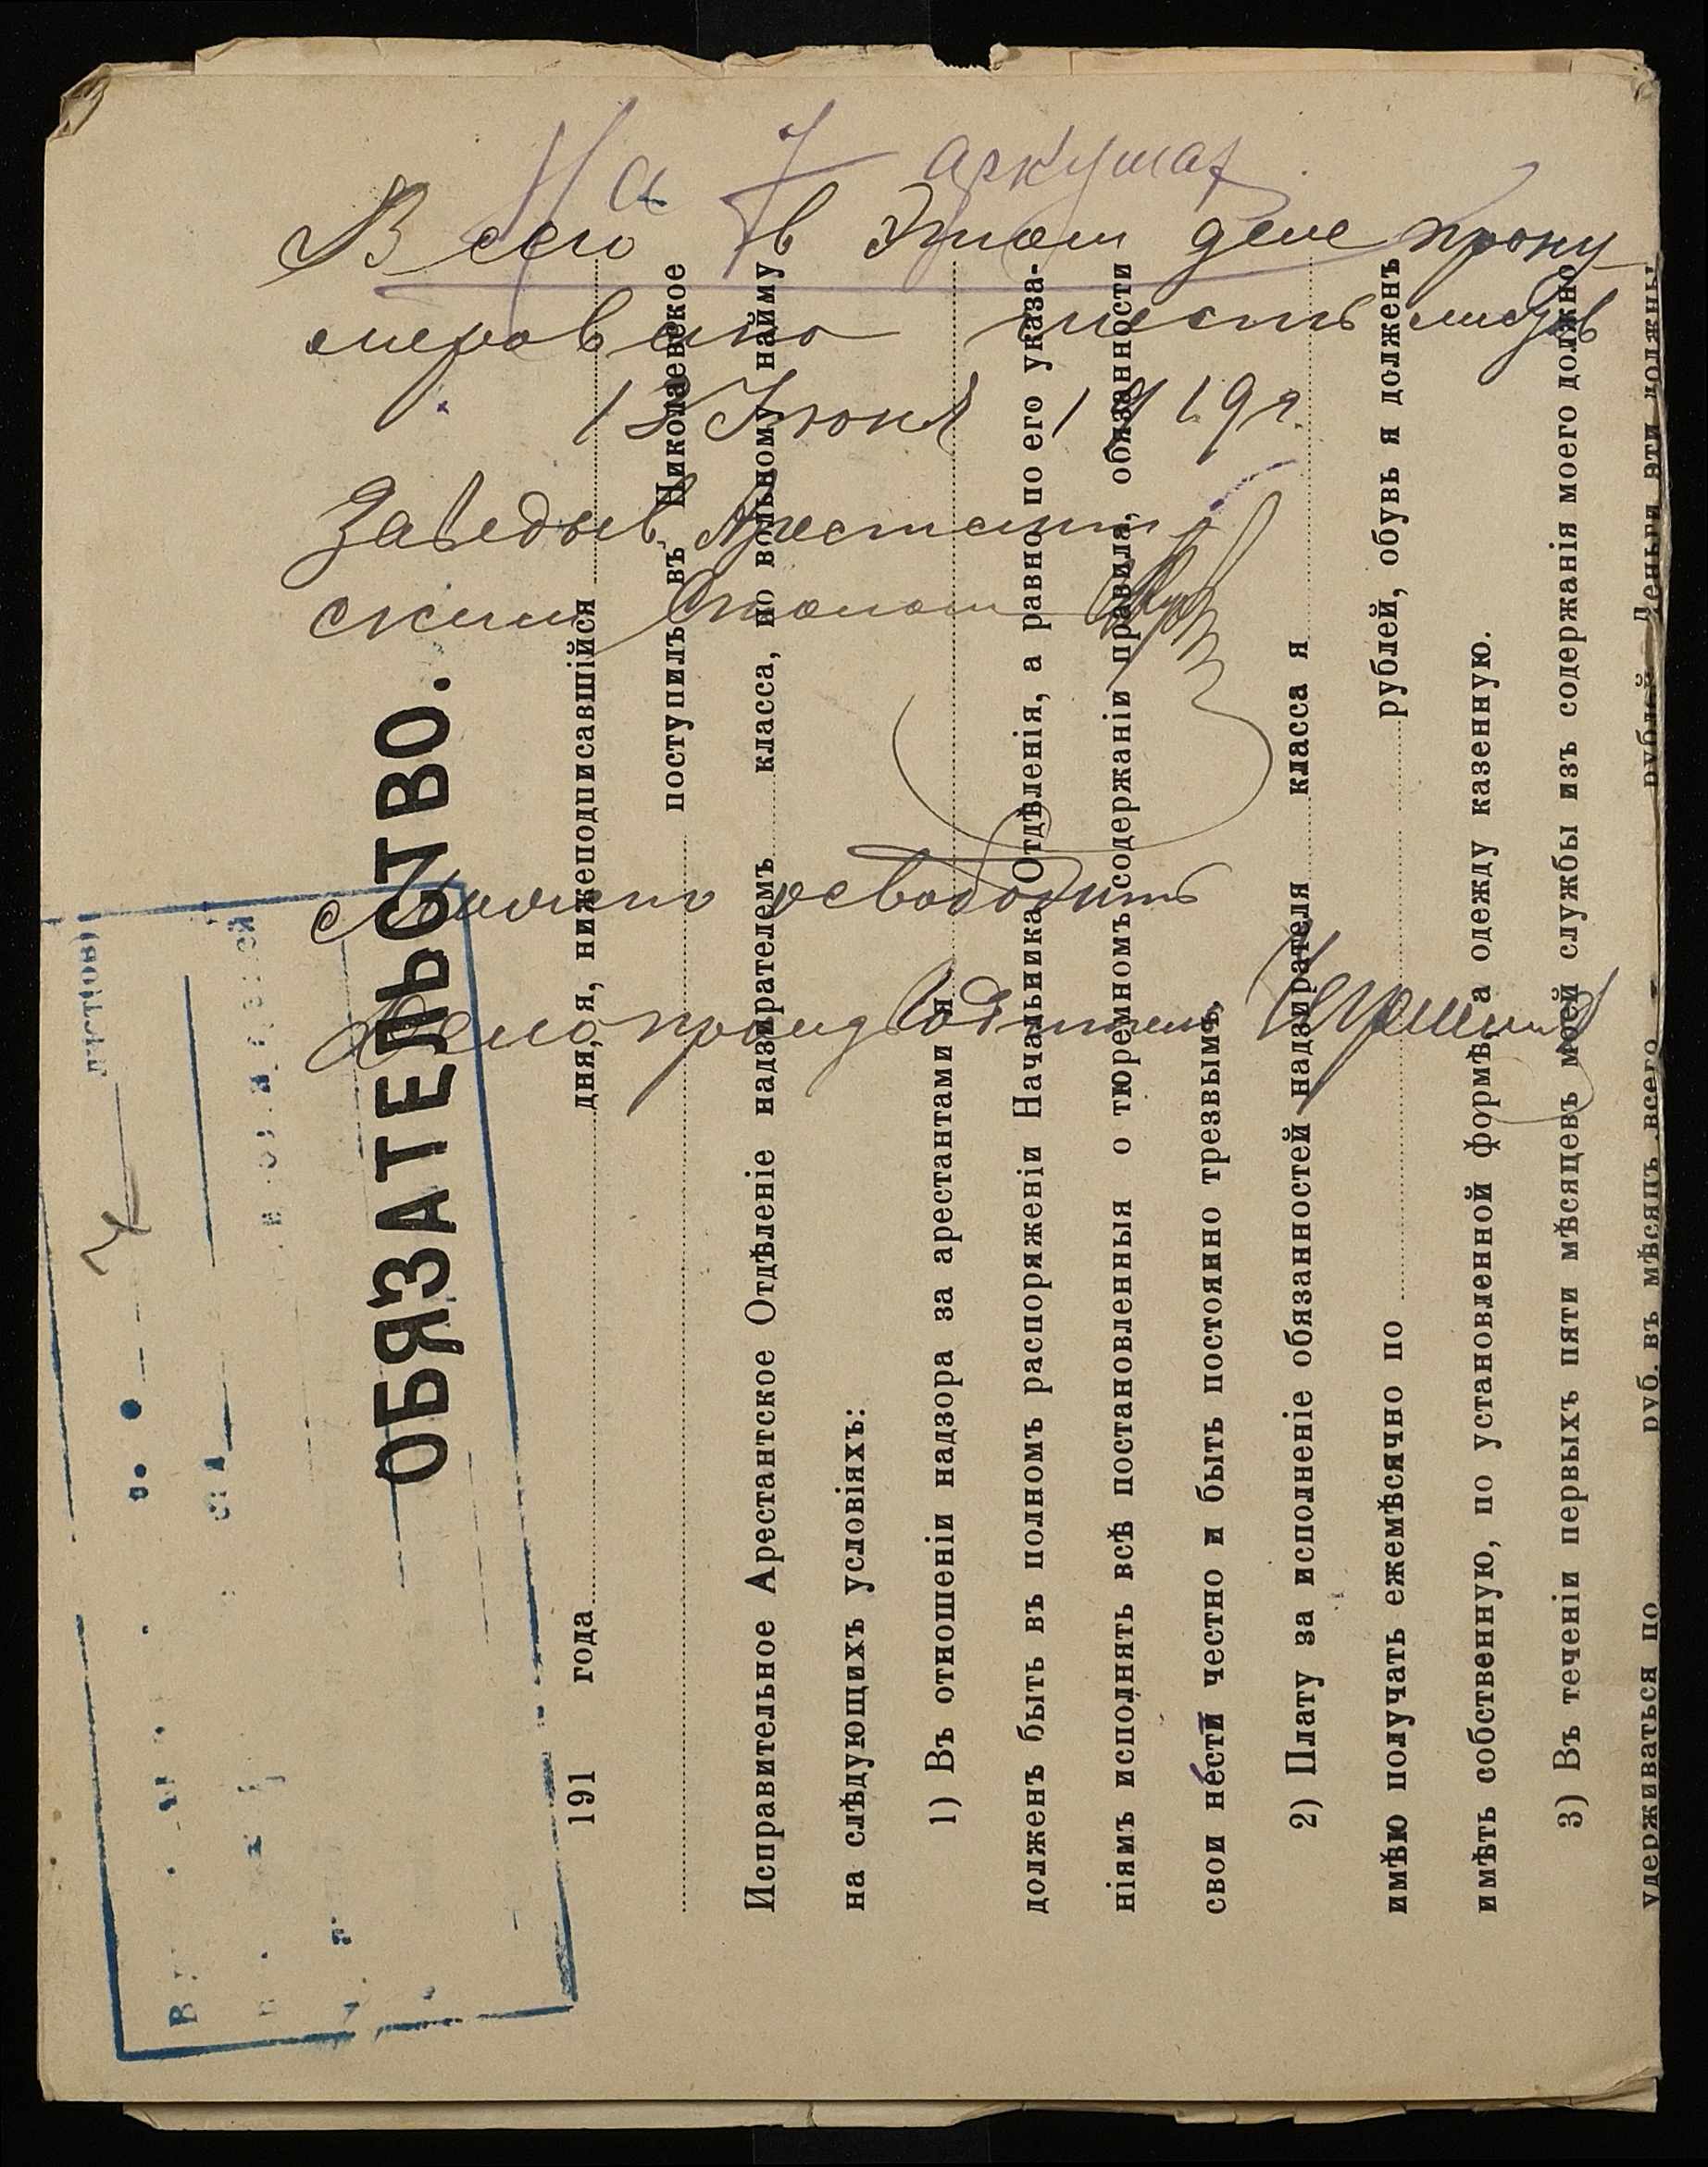 На 7 аркушах
Всего в этом деле прону
меровано шесть листов
13 Июня 1919 г.
Заведыв. Арестант
ским Столом
Можно освободить
Делопроизводитель
ОБЯЗАТЕЛЬСТВО.
191 года дня, я, нижеподписавшійся
поступилъ въ Николаевское
Исправительное Арестантское Отдѣленіе надзирателемъ класса, по вольному найму
на слѣдующихъ условіяхъ:
1) Въ отношеніи надзора за арестантами я
долженъ быть въ полномъ распоряженіи Начальника Отдѣленія, а равно по его указа-
ніямъ исполнять всѣ постановленныя о тюремномъ содержаніи правила, обязанности
свои нести честно и быть постоянно трезвымъ,
2) Плату за исполненіе обязанностей надзирателя класса я
имѣю получать ежемѣсячно по рублей, обувь я долженъ
имѣть собственную, по установленной формѣ, а одежду казенную.
3) Въ теченіи первыхъ пяти мѣсяцевъ моей службы изъ содержанія моего должно
удерживаться по руб. въ мѣсяцъ всего рублей. Деньги эти должны